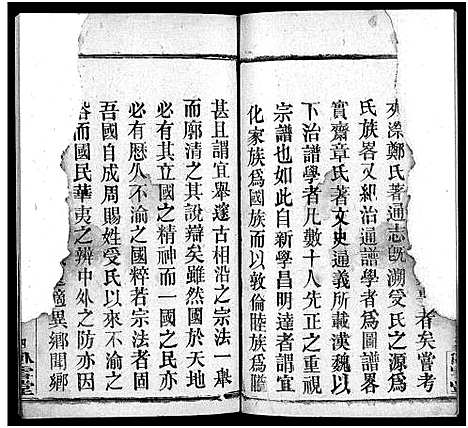 者矣嘗考
夾漈鄭氏著通志旣溯受氏之源爲
氏族畧又紐治通譜學者爲圖譜畧
實齋章氏著文史通義所載漢魏以
下治譜學者凡數十人先正之重視
宗譜也如此自新學昌明達識者謂宜
化家族爲國族而以敦倫睦族爲隘
甚且謂宜舉邃古相沿之宗法一舉
而廓清之其說辯矣雖然國於天地
必有其立國之精神而一國之民亦
必有歷久不渝之國粹若宗法者固
吾國自成周賜姓受氏以來不渝之
而國民華夷之辨中外之防亦因
適異鄉聞鄉